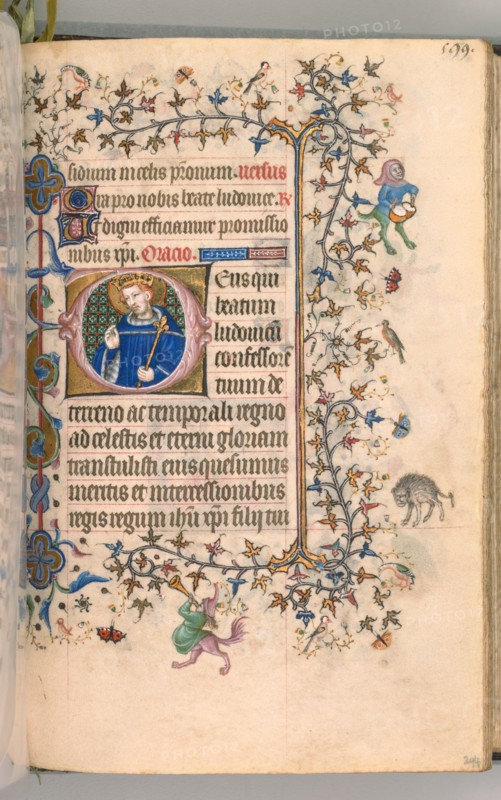 199.
sidium in celis pronum. uersus
Ora pro nobis beate ludouice. R
Ut digni efficiamur promissio
nibus xpi. Oracio.
Deus qui
beatum
ludouicū
confessorē
tuum de
terreno ac temporali regno
ad celestis et eterni gloriam
transtulisti eius quesumus
meritis et intercessionibus
regis regum ihū xpi filij tui
PHOTO12
PHOTO12
PHOTO12
PHOTO12